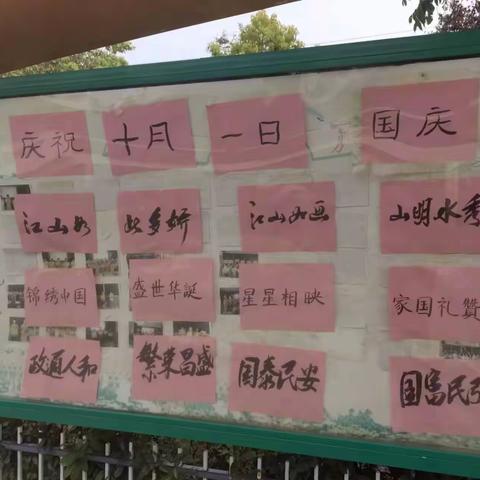 庆祝 十月 一日 国庆
江山如 此多娇 江山如画 山明水秀
锦绣中国 盛世华誕 星星相映 家国礼贊
政通人和 繁荣昌盛 国泰民安 国富民